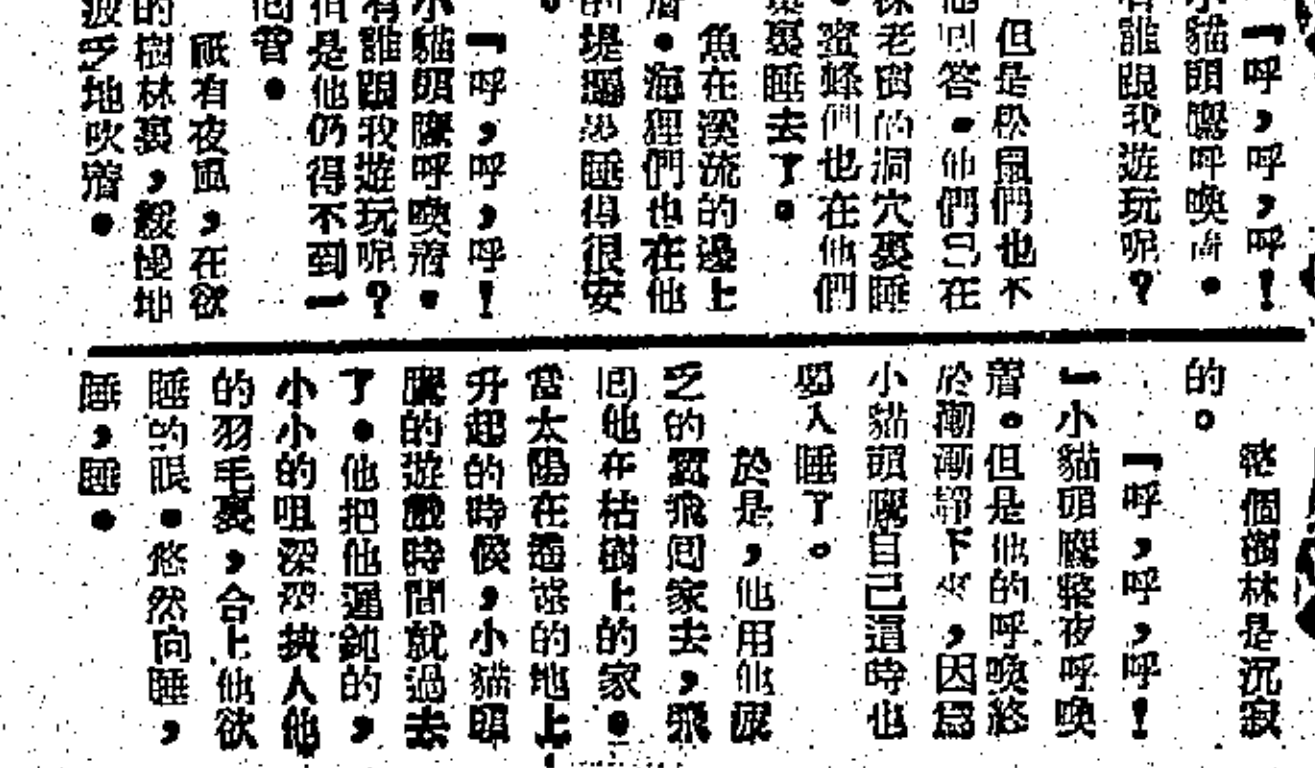 「呼,呼,呼!
小貓頭鷹呼喚着.
有誰跟我遊玩呢?
但是松鼠們也不
回答.他們已在
老樹的洞穴裏睡
.蜜蜂們也在他們
裏睡去了.
魚在溪流的邊上
.海狸們也在他
的堤壩睡得很安
「呼,呼,呼!
小貓頭鷹呼喚着.
有誰跟我遊玩呢?
但是他仍得不到一
回音.
祇有夜風,在欲
的樹林裏,緩慢地
疲乏地吹着.
整個樹林是沉寂
的。
「呼,呼,呼!
」小貓頭鷹整夜呼喚
着。但是他的呼喚終
於漸漸靜下來,因爲
小貓頭鷹自己這時也
要入睡了。
於是,他用他疲
乏的翼飛回家去,飛
回他在枯樹上的家.
當太陽在遙遠的地上
升起的時候,小貓頭
鷹的遊戲時間就過去
了.他把他遲鈍的,
小小的咀深深執入他
的羽毛裏,合上他欲
睡的眼.悠然向睡,
睡,睡.